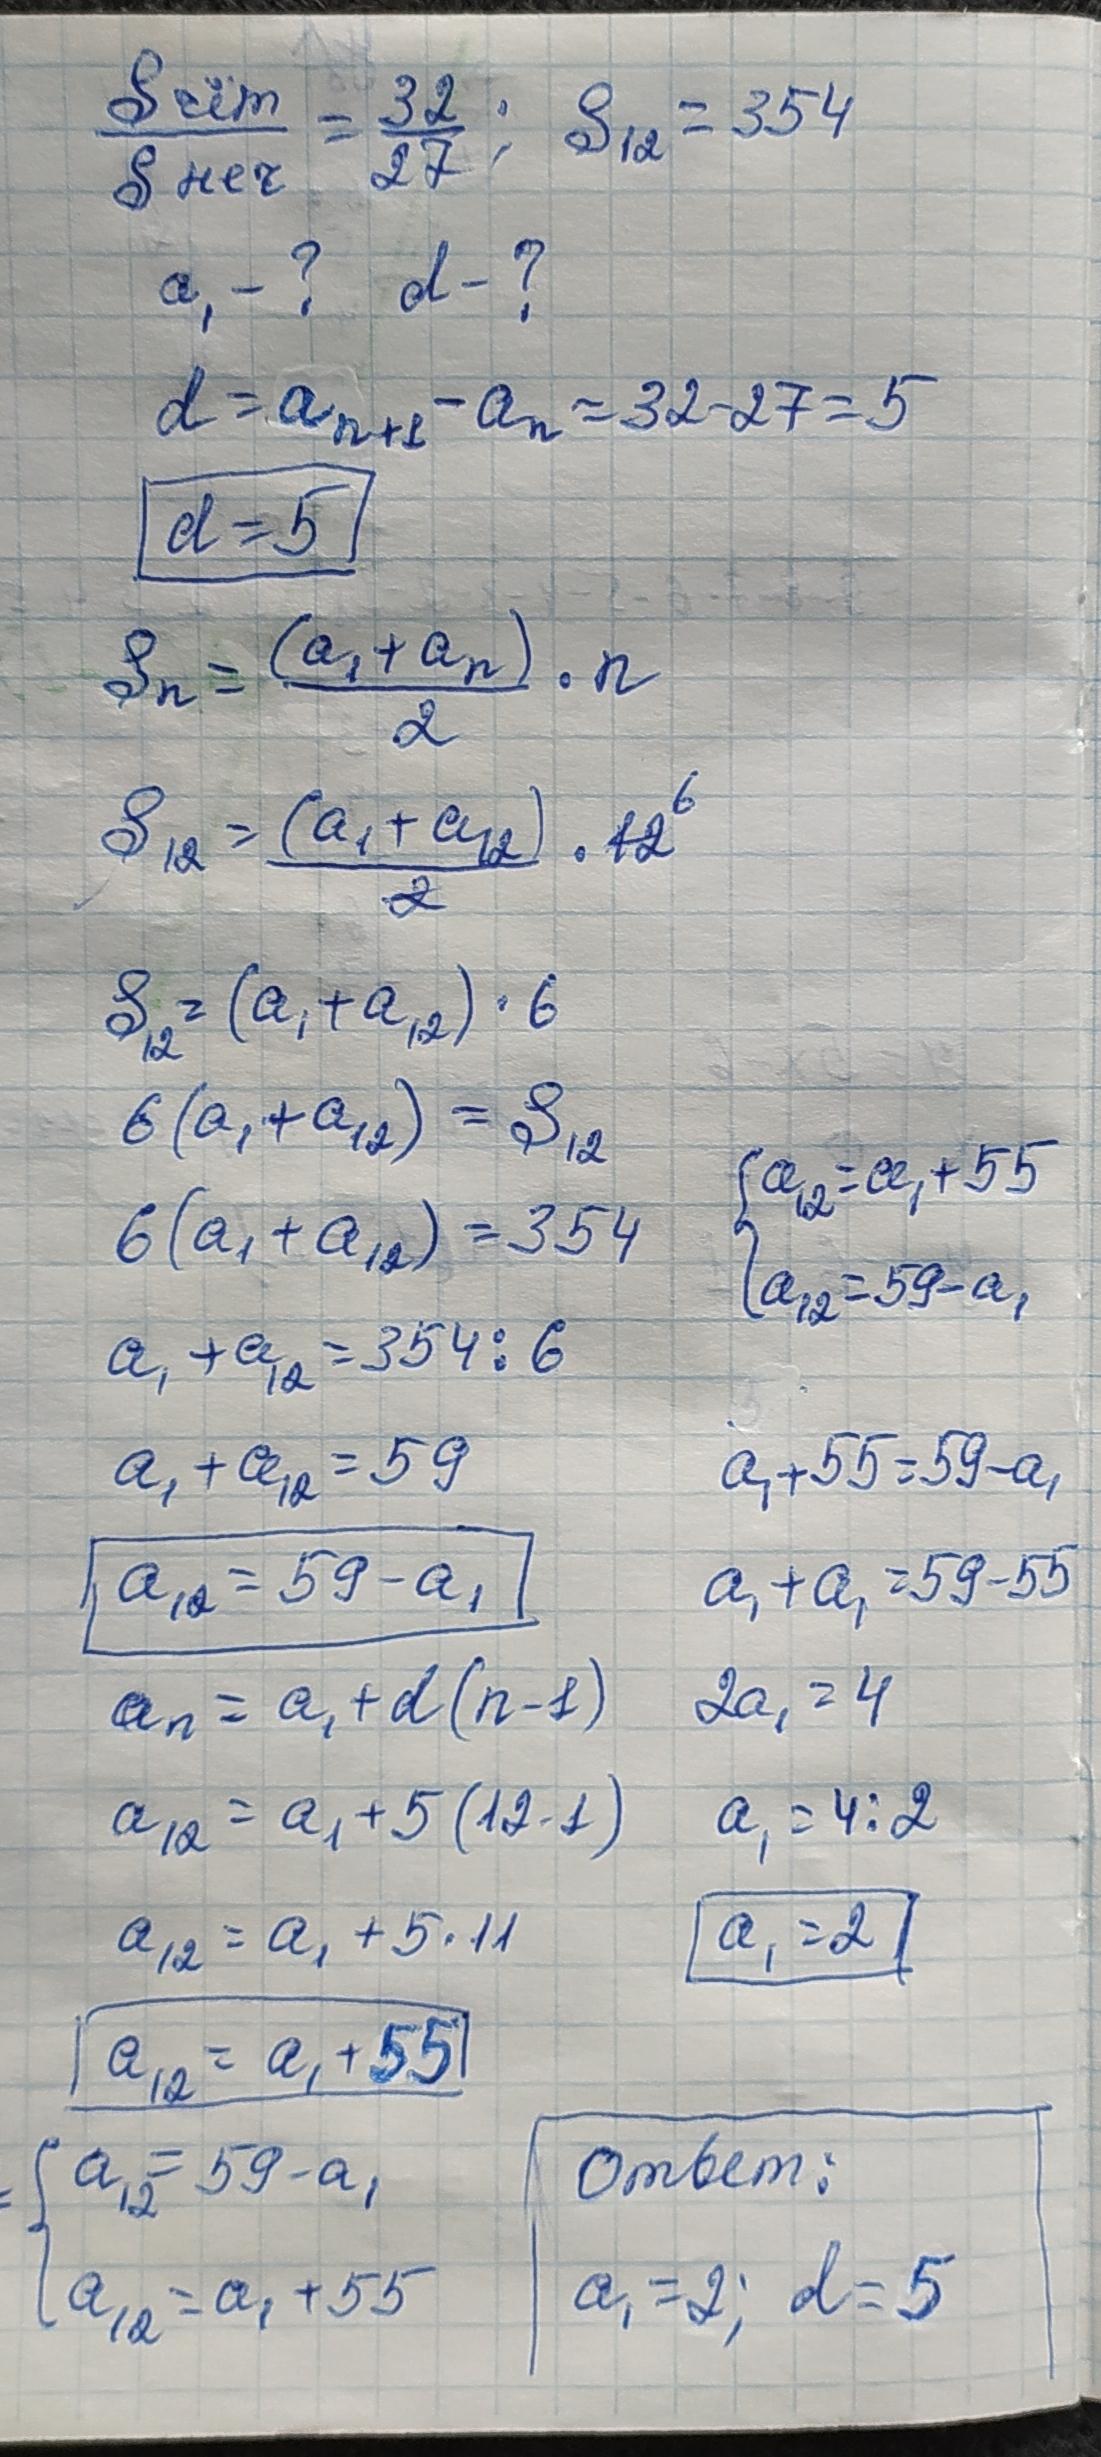 Sчёт/Sнеч = 32/27; S₁₂ = 354
a₁ - ? d - ?
d = aₙ₊₁ - aₙ = 32 - 27 = 5
d = 5
Sₙ = (a₁ + aₙ)/2 · n
S₁₂ = (a₁ + a₁₂)/2 · 12 6
S₁₂ = (a₁ + a₁₂) · 6
6(a₁ + a₁₂) = S₁₂
6(a₁ + a₁₂) = 354
a₁ + a₁₂ = 354 : 6
a₁ + a₁₂ = 59
a₁₂ = 59 - a₁
aₙ = a₁ + d(n - 1)
a₁₂ = a₁ + 5(12 - 1)
a₁₂ = a₁ + 5 · 11
a₁₂ = a₁ + 55
= { a₁₂ = 59 - a₁
a₁₂ = a₁ + 55
{ a₁₂ = a₁ + 55
a₁₂ = 59 - a₁
a₁ + 55 = 59 - a₁
a₁ + a₁ = 59 - 55
2a₁ = 4
a₁ = 4 : 2
a₁ = 2
Ответ:
a₁ = 2; d = 5